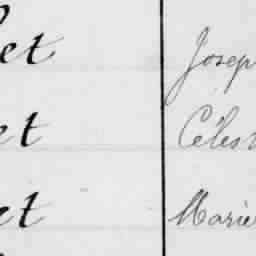 et Joseph
et Célest
et Marie